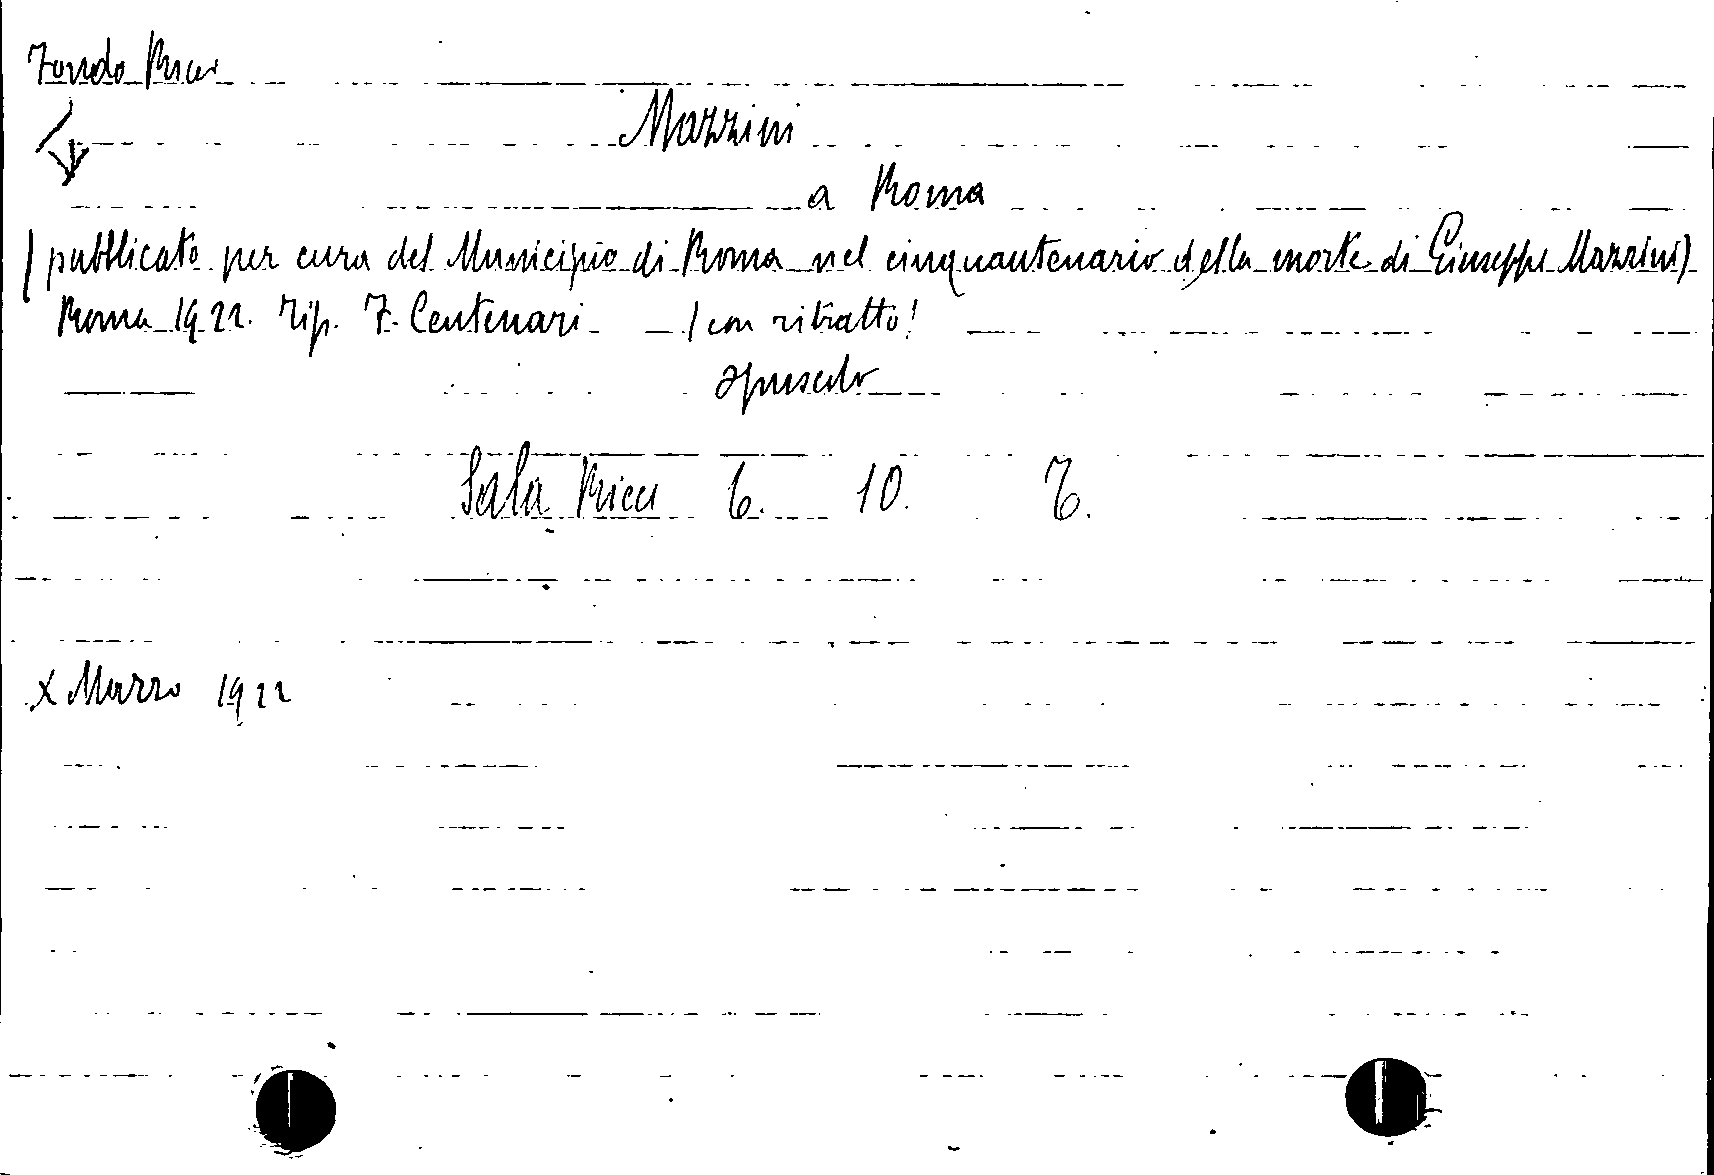 Fondo Ricci
Mazzini
a Roma
(pubblicato per cura del Municipio di Roma nel cinquantenario della morte di Giuseppe Mazzini)
Roma 1922. Tip. F. Centenari - (con ritratto)
opuscolo
Sala Ricci 6. 10. 7.
X Marzo 1922